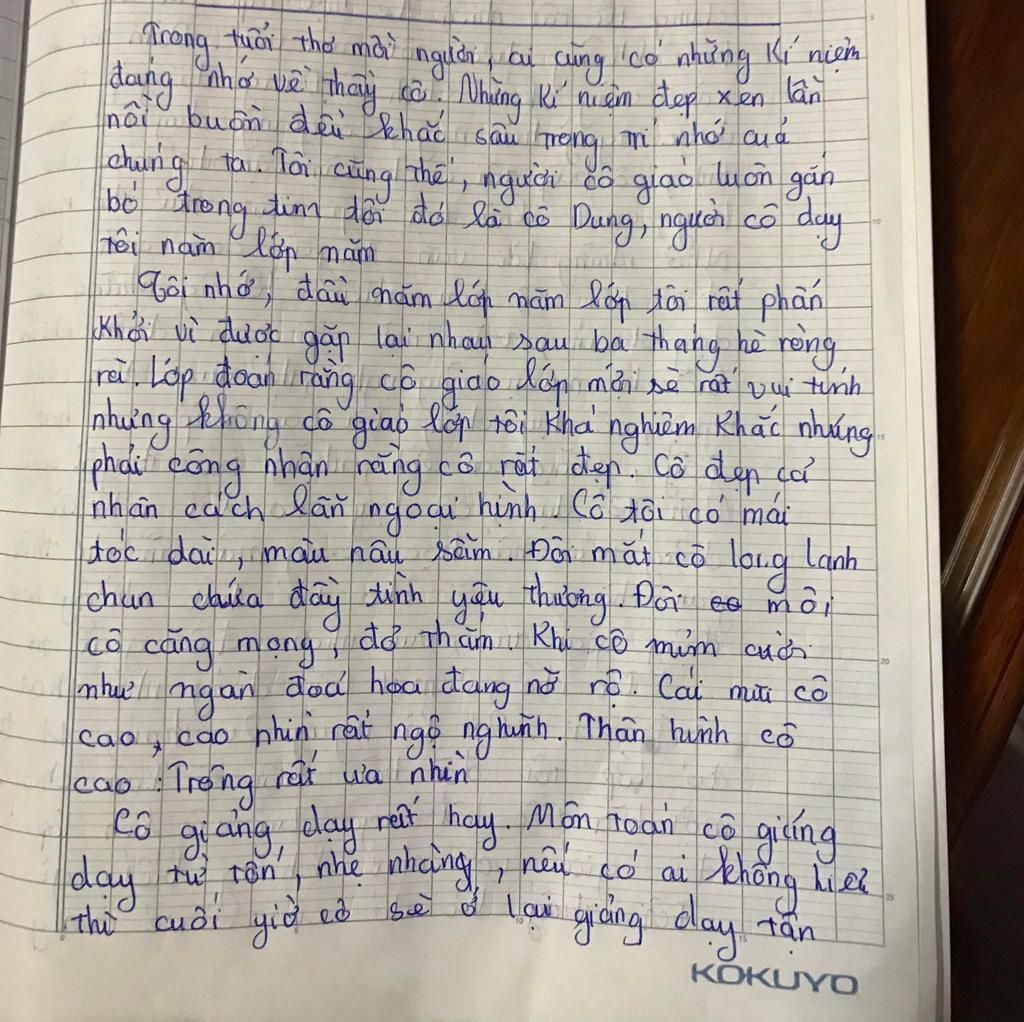 Trong tuổi thơ mỗi người, ai cũng có những kí niệm
đáng nhớ về thầy cô. Những kí niệm đẹp xen lẫn
nỗi buồn đều khắc sâu trong trí nhớ cuả
chúng ta. Tôi cũng thế, người cô giáo luôn gắn
bó trong tim tôi đó là cô Dung, người cô dạy
tôi năm lớp năm
Tôi nhớ, đầu năm lớp năm lớp tôi rất phấn
khởi vì được gặp lại nhau sau ba tháng hè ròng
rã. Lớp đoán rằng cô giáo lớp mới sẽ rất vui tính
nhưng không cô giáo lớp tôi khá nghiêm khắc nhưng
phải công nhận rằng cô rất đẹp. Cô đẹp cả
nhân cách lẫn ngoại hình. Cô tôi có mái
tóc dài, màu nâu sẫm. Đôi mắt cô long lanh
chun chứa đầy tình yêu thương. Đôi môi
cô căng mọng, đỏ thắm. Khi cô mỉm cười
như ngàn đoá hoa đang nở rộ. Cái mũi cô
cao, cao nhìn rất ngộ nghĩnh. Thân hình cô
cao. Trông rất ưa nhìn
Cô giảng dạy rất hay. Môn toán cô giảng
dạy từ tốn, nhẹ nhàng, nếu có ai không hiểu
thì cuối giờ cô sẽ ở lại giảng dạy tận
KOKUYO